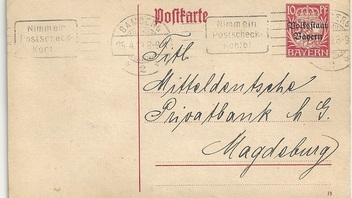 Postkarte
Nimm ein
Postscheck-
Konto!
BAMBERG
Nimm ein
Postscheck-
Konto!
10 PF
Volksstaat
Bayern
BAYERN
Titl.
Mitteldeutsche
Privatbank
Magdeburg